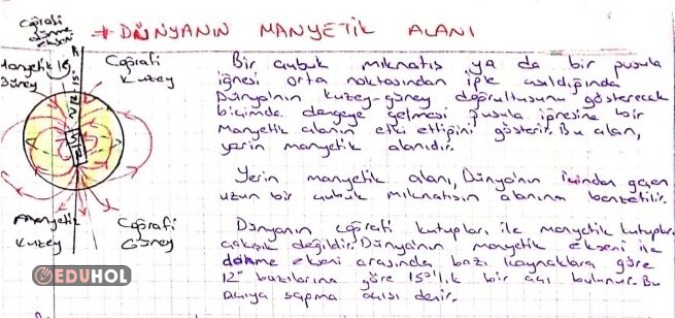 * DÜNYANIN MANYETİK ALANI
Coğrafi
dönme
ekseni
Manyetik
Güney
15°
Coğrafi
Kuzey
Manyetik
Kuzey
Coğrafi
Güney
EDUHOL
Bir çubuk mıknatıs ya da bir pusula
iğnesi orta noktasından iple asıldığında
Dünya'nın kuzey-güney doğrultusunu gösterecek
biçimde dengeye gelmesi pusula iğnesine bir
manyetik alanın etki ettiğini gösterir. Bu alan,
yerin manyetik alanıdır.
Yerin manyetik alanı, Dünya'nın içinden geçen
uzun bir çubuk mıknatısın alanına benzetilir.
Dünyanın coğrafi kutupları ile manyetik kutupları
çakışık değildir. Dünya'nın manyetik ekseni ile
dönme ekseni arasında bazı kaynaklara göre
12° bazılarına göre 15°'lık bir açı bulunur. Bu
açıya sapma açısı denir.